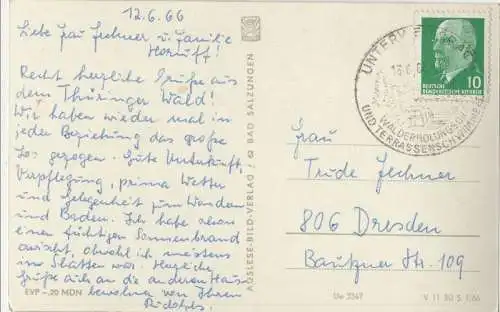 12.6.66
Liebe Frau Jechner u. Familie
Recht herzliche Grüße aus
dem Thüringer Wald!
Wir haben wieder mal in
jeder Beziehung das große
Los gezogen. Gute Unterkunft,
Verpflegung, prima Wetter
und Gelegenheit zum Wandern
und Baden. Ich habe schon
einen tüchtigen Sonnenbrand
erwischt, obwohl ich meistens
im Schatten war. Herzliche
Grüße auch an die anderen Haus-
bewohner von Ihren
EVP -.20 MDN
AUSLESE-BILD-VERLAG / Q BAD SALZUNGEN
UND TERRASSENSCHWIMMBAD
10
DEUTSCHE
DEMOKRATISCHE REPUBLIK
Frau
Trude Jechner
806 Dresden
Bautzner Str. 109
De 3247
V 11 80 S 1/66